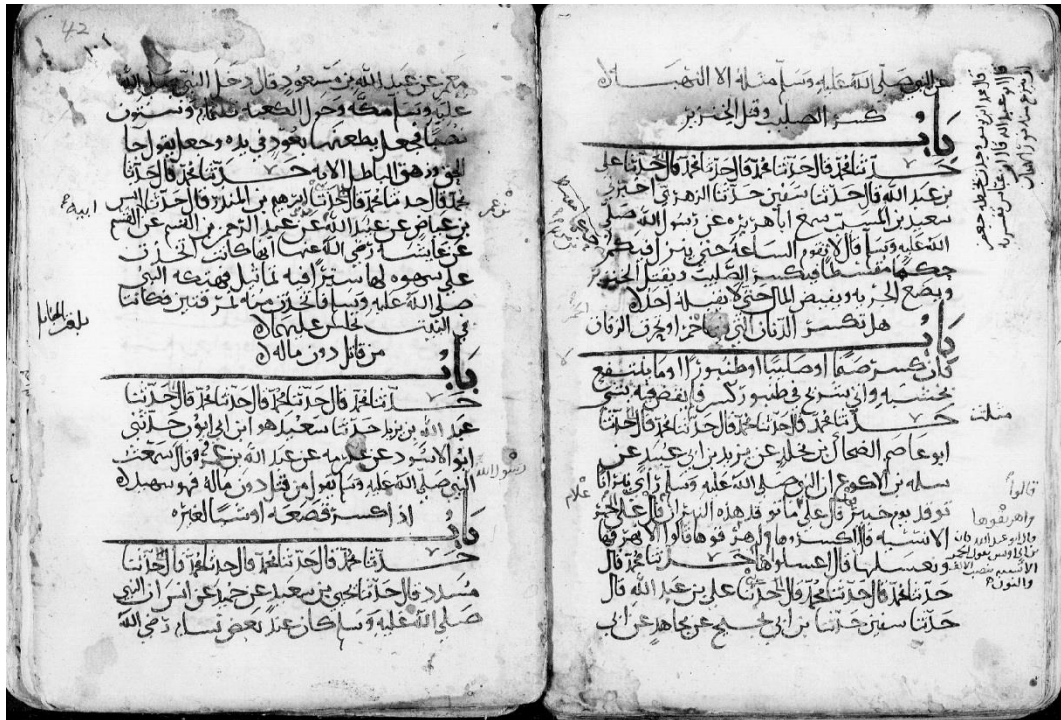 عن النبي صلى الله عليه وسلم مثله الا النهبة
كسر الصليب وقتل الخنزير
باب
حدثنا محمد قال حدثنا محمد قال حدثنا محمد قال حدثنا علي
بن عبد الله قال حدثنا سفين حدثنا الزهري اخبرني
سعيد بن المسيب سمع ابا هريرة عن رسول الله صلى
الله عليه وسلم قال لا تقوم الساعة حتى ينزل فيكم
حكما مقسطا فيكسر الصليب ويقتل الخنزير
ويضع الجزية ويفيض المال حتى لا يقبله احد
هل تكسر الدنان التي فيها خمر او تخرق الزقاق
باب
فان كسر صنما او صليبا او طنبورا او ما لا ينتفع
بخشبه واتي شريح في طنبور كسر فلم يقض فيه بشي
حدثنا محمد قال حدثنا محمد قال حدثنا محمد قال حدثنا
ابو عاصم الضحاك بن مخلد عن يزيد بن ابي عبيد عن
سلمة بن الاكوع ان النبي صلى الله عليه وسلم راي نيرانا
توقد يوم خيبر قال على ما توقد هذه النيران قال على الحمر
الانسية قال اكسروها واهرقوها قالوا الا نهرقها
ونغسلها قال اغسلوها حدثنا محمد قال
حدثنا محمد قال حدثنا محمد قال حدثنا علي بن عبد الله قال
حدثنا سفين حدثنا بن ابي نجيح عن مجاهد عن ابي
علام
قالوا
واهريقوها
قال ابو عبد الله كان
بن ابي اويس يقول الحمر
الانسية بنصب الالف
والنون
42
معمر عن عبد الله بن مسعود قال دخل النبي صلى الله
عليه وسلم مكة وحول الكعبة ثلثماية وستون
نصبا فجعل يطعنها بعود في يده وجعل يقول جا
الحق وزهق الباطل الاية حدثنا محمد قال حدثنا
محمد قال حدثنا محمد قال حدثنا ابرهيم بن المنذر قال حدثنا انس
بن عياض عن عبيد الله عن عبد الرحمن بن القسم عن القسم
عن عايشة رضي الله عنها انها كانت اتخذت
على سهوة لها سترا فيه تماثيل فهتكه النبي
صلى الله عليه وسلم فاتخذت منه نمرقتين فكانتا
في البيت تجلس عليهما
من قاتل دون ماله
باب
حدثنا محمد قال حدثنا محمد قال حدثنا محمد قال حدثنا
عبد الله بن يزيد حدثنا سعيد هو ابن ابي ايوب حدثني
ابو الاسود عن عكرمة عن عبد الله بن عمرو قال سمعت
النبي صلى الله عليه وسلم يقول من قتل دون ماله فهو شهيد
اذا كسر قصعة او شيا لغيره
باب
حدثنا محمد قال حدثنا محمد قال حدثنا محمد قال حدثنا
مسدد قال حدثنا يحيى بن سعيد عن حميد عن انس ان النبي
صلى الله عليه وسلم كان عند بعض نسايه رضي الله
ابيه
بن عمر
رسول الله